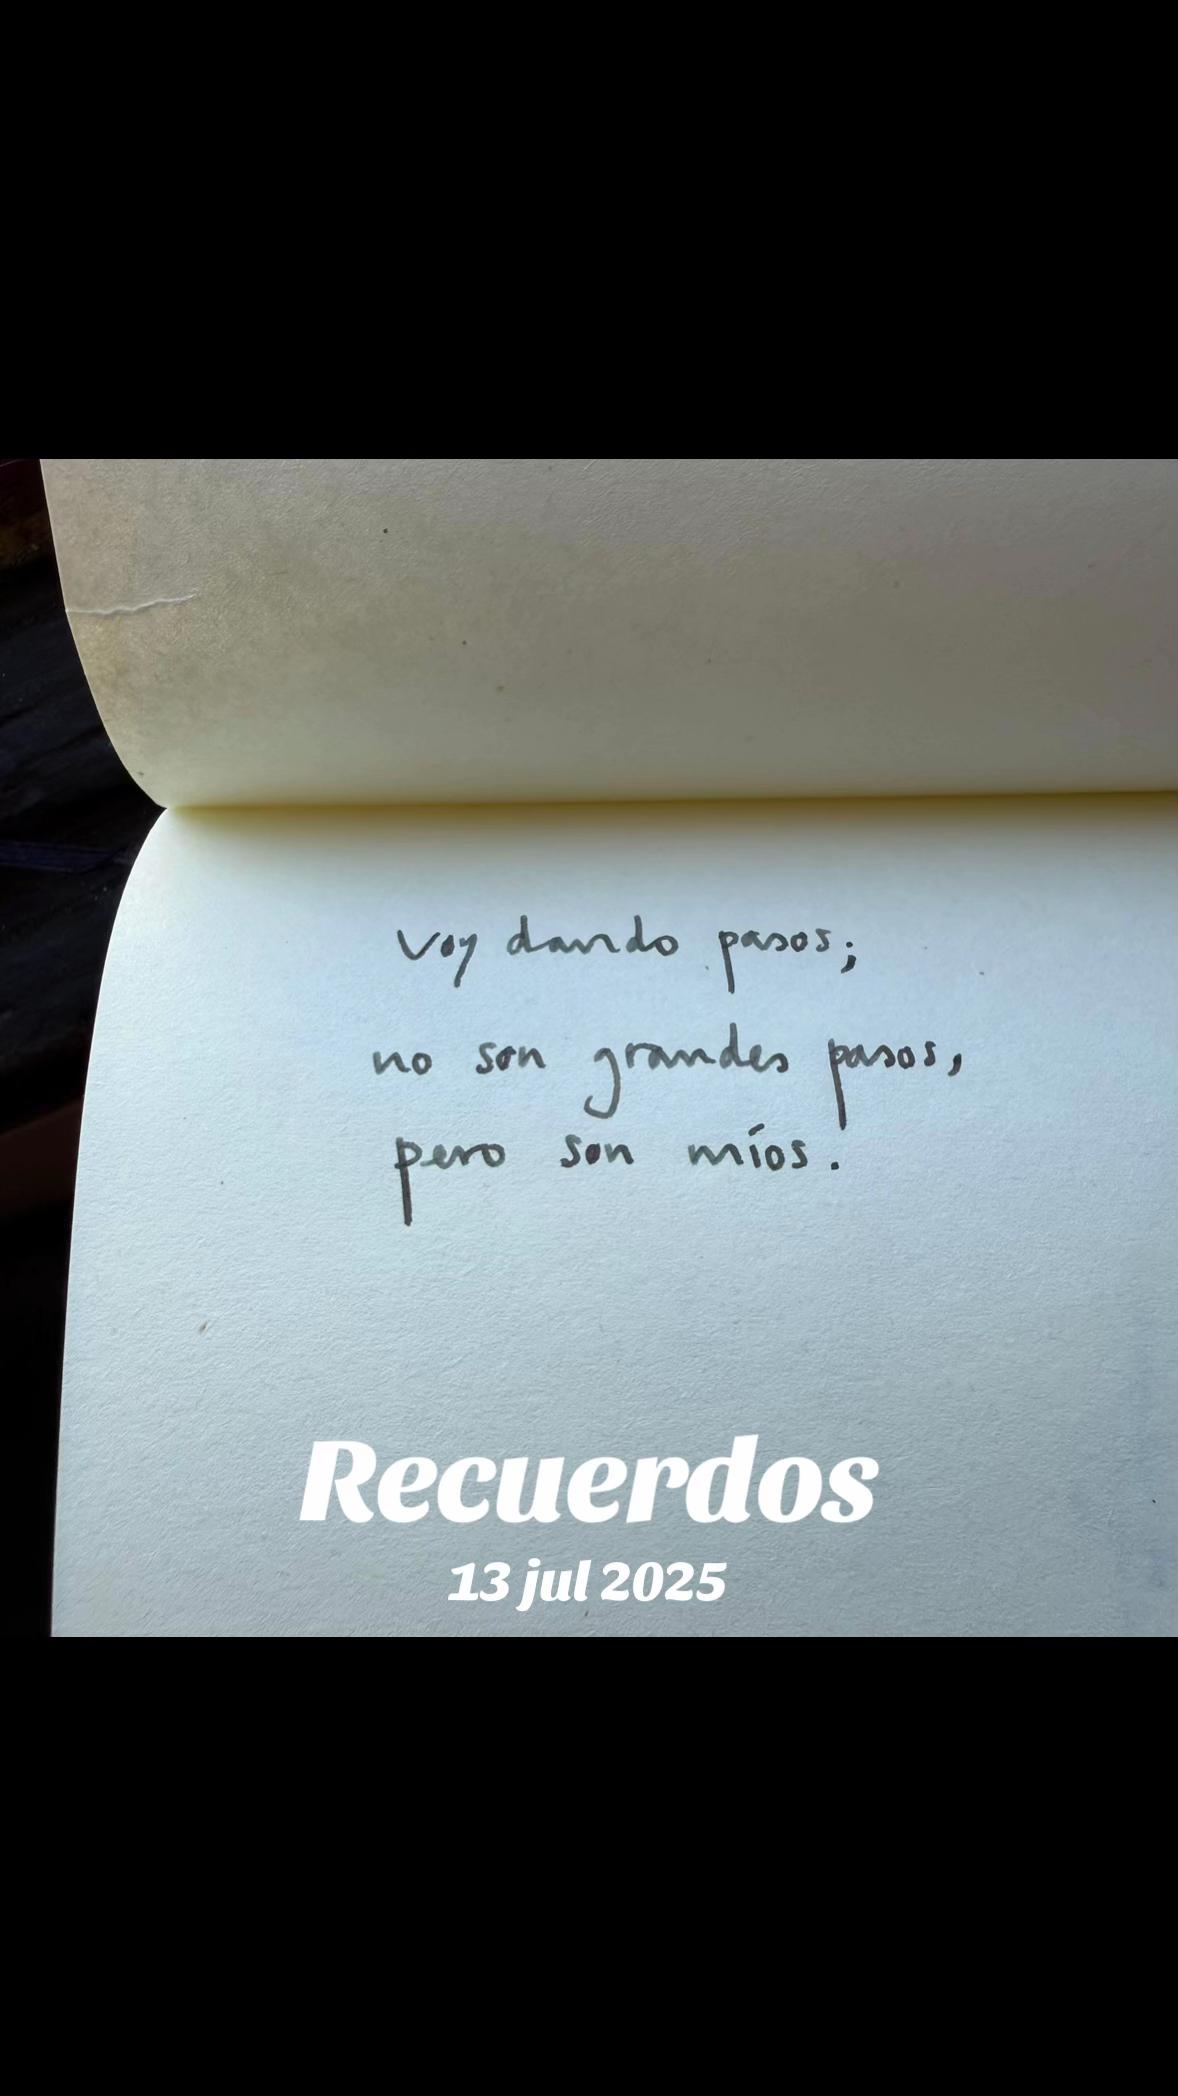 Voy dando pasos;
no son grandes pasos,
pero son míos.
Recuerdos
13 jul 2025